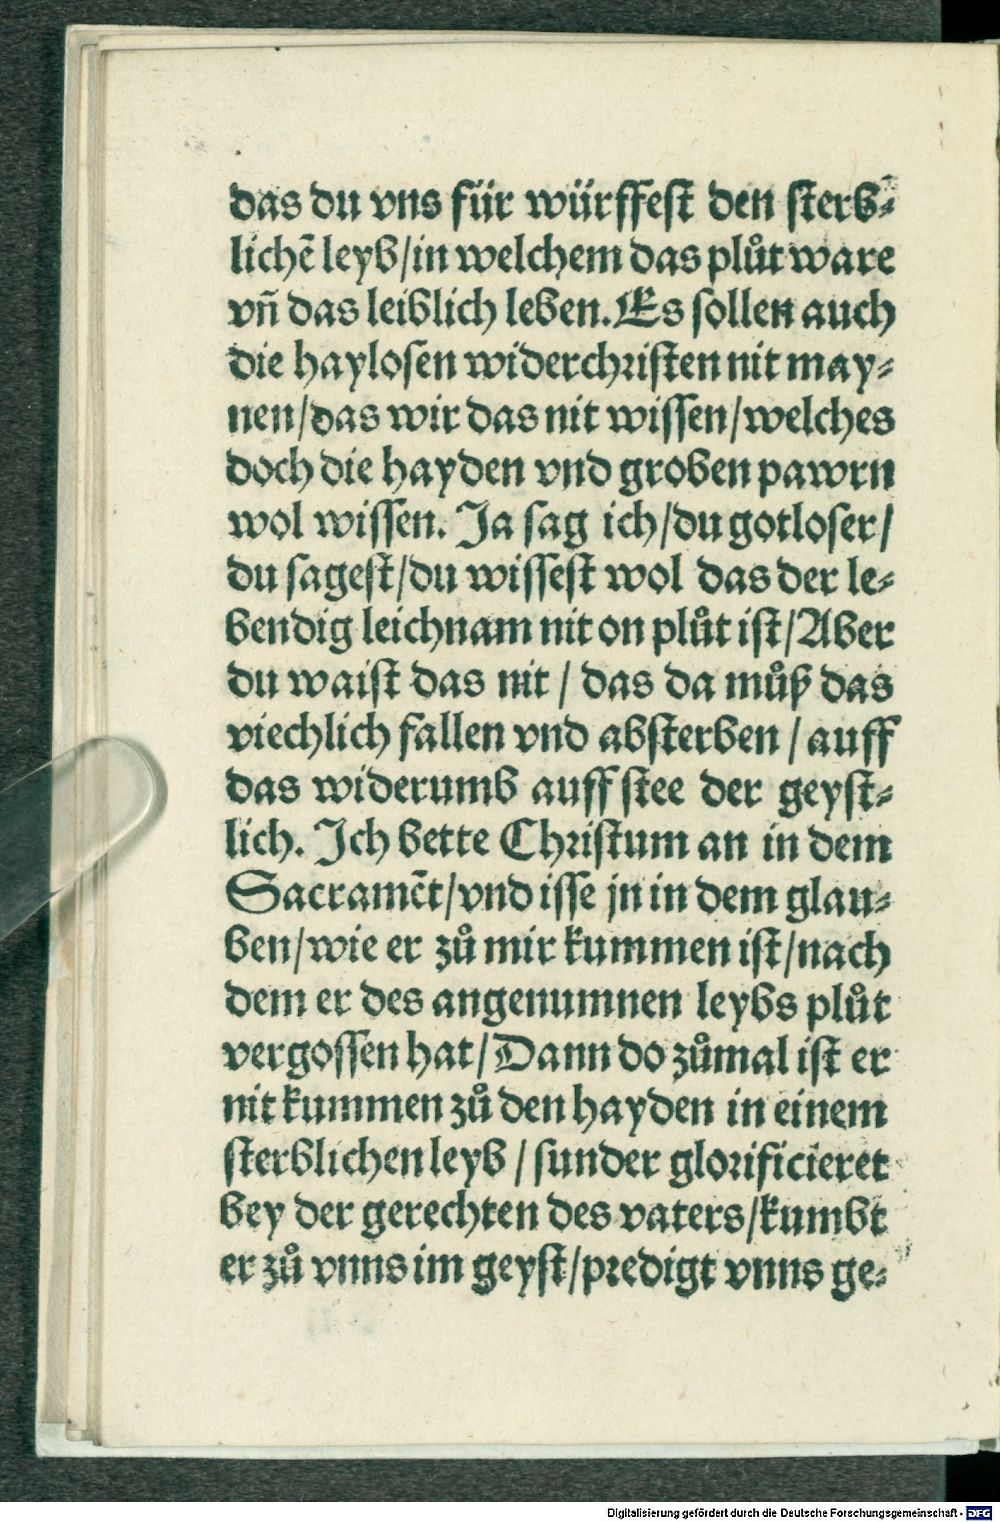 das du vns für würffest den sterb⸗
lichē leyb/in welchem das plůt ware
vn̄ das leiblich leben. Es sollen auch
die haylosen widerchristen nit may⸗
nen/das wir das nit wissen/welches
doch die hayden vnd groben pawrn
wol wissen. Ja sag ich/du gotloser/
du sagest/du wissest wol das der le⸗
bendig leichnam nit on plůt ist/Aber
du waist das nit/das da můß das
viechlich fallen vnd absterben/auff
das widerumb auff stee der geyst⸗
lich. Ich bette Christum an in dem
Sacramēt/vnd isse jn in dem glau⸗
ben/wie er zů mir kummen ist/nach
dem er des angenumnen leybs plůt
vergossen hat/Dann do zůmal ist er
nit kummen zů den hayden in einem
sterblichen leyb/sunder glorificieret
bey der gerechten des vaters/kumbt
er zů vnns im geyst/predigt vnns ge⸗
Digitalisierung gefördert durch die Deutsche Forschungsgemeinschaft - DFG